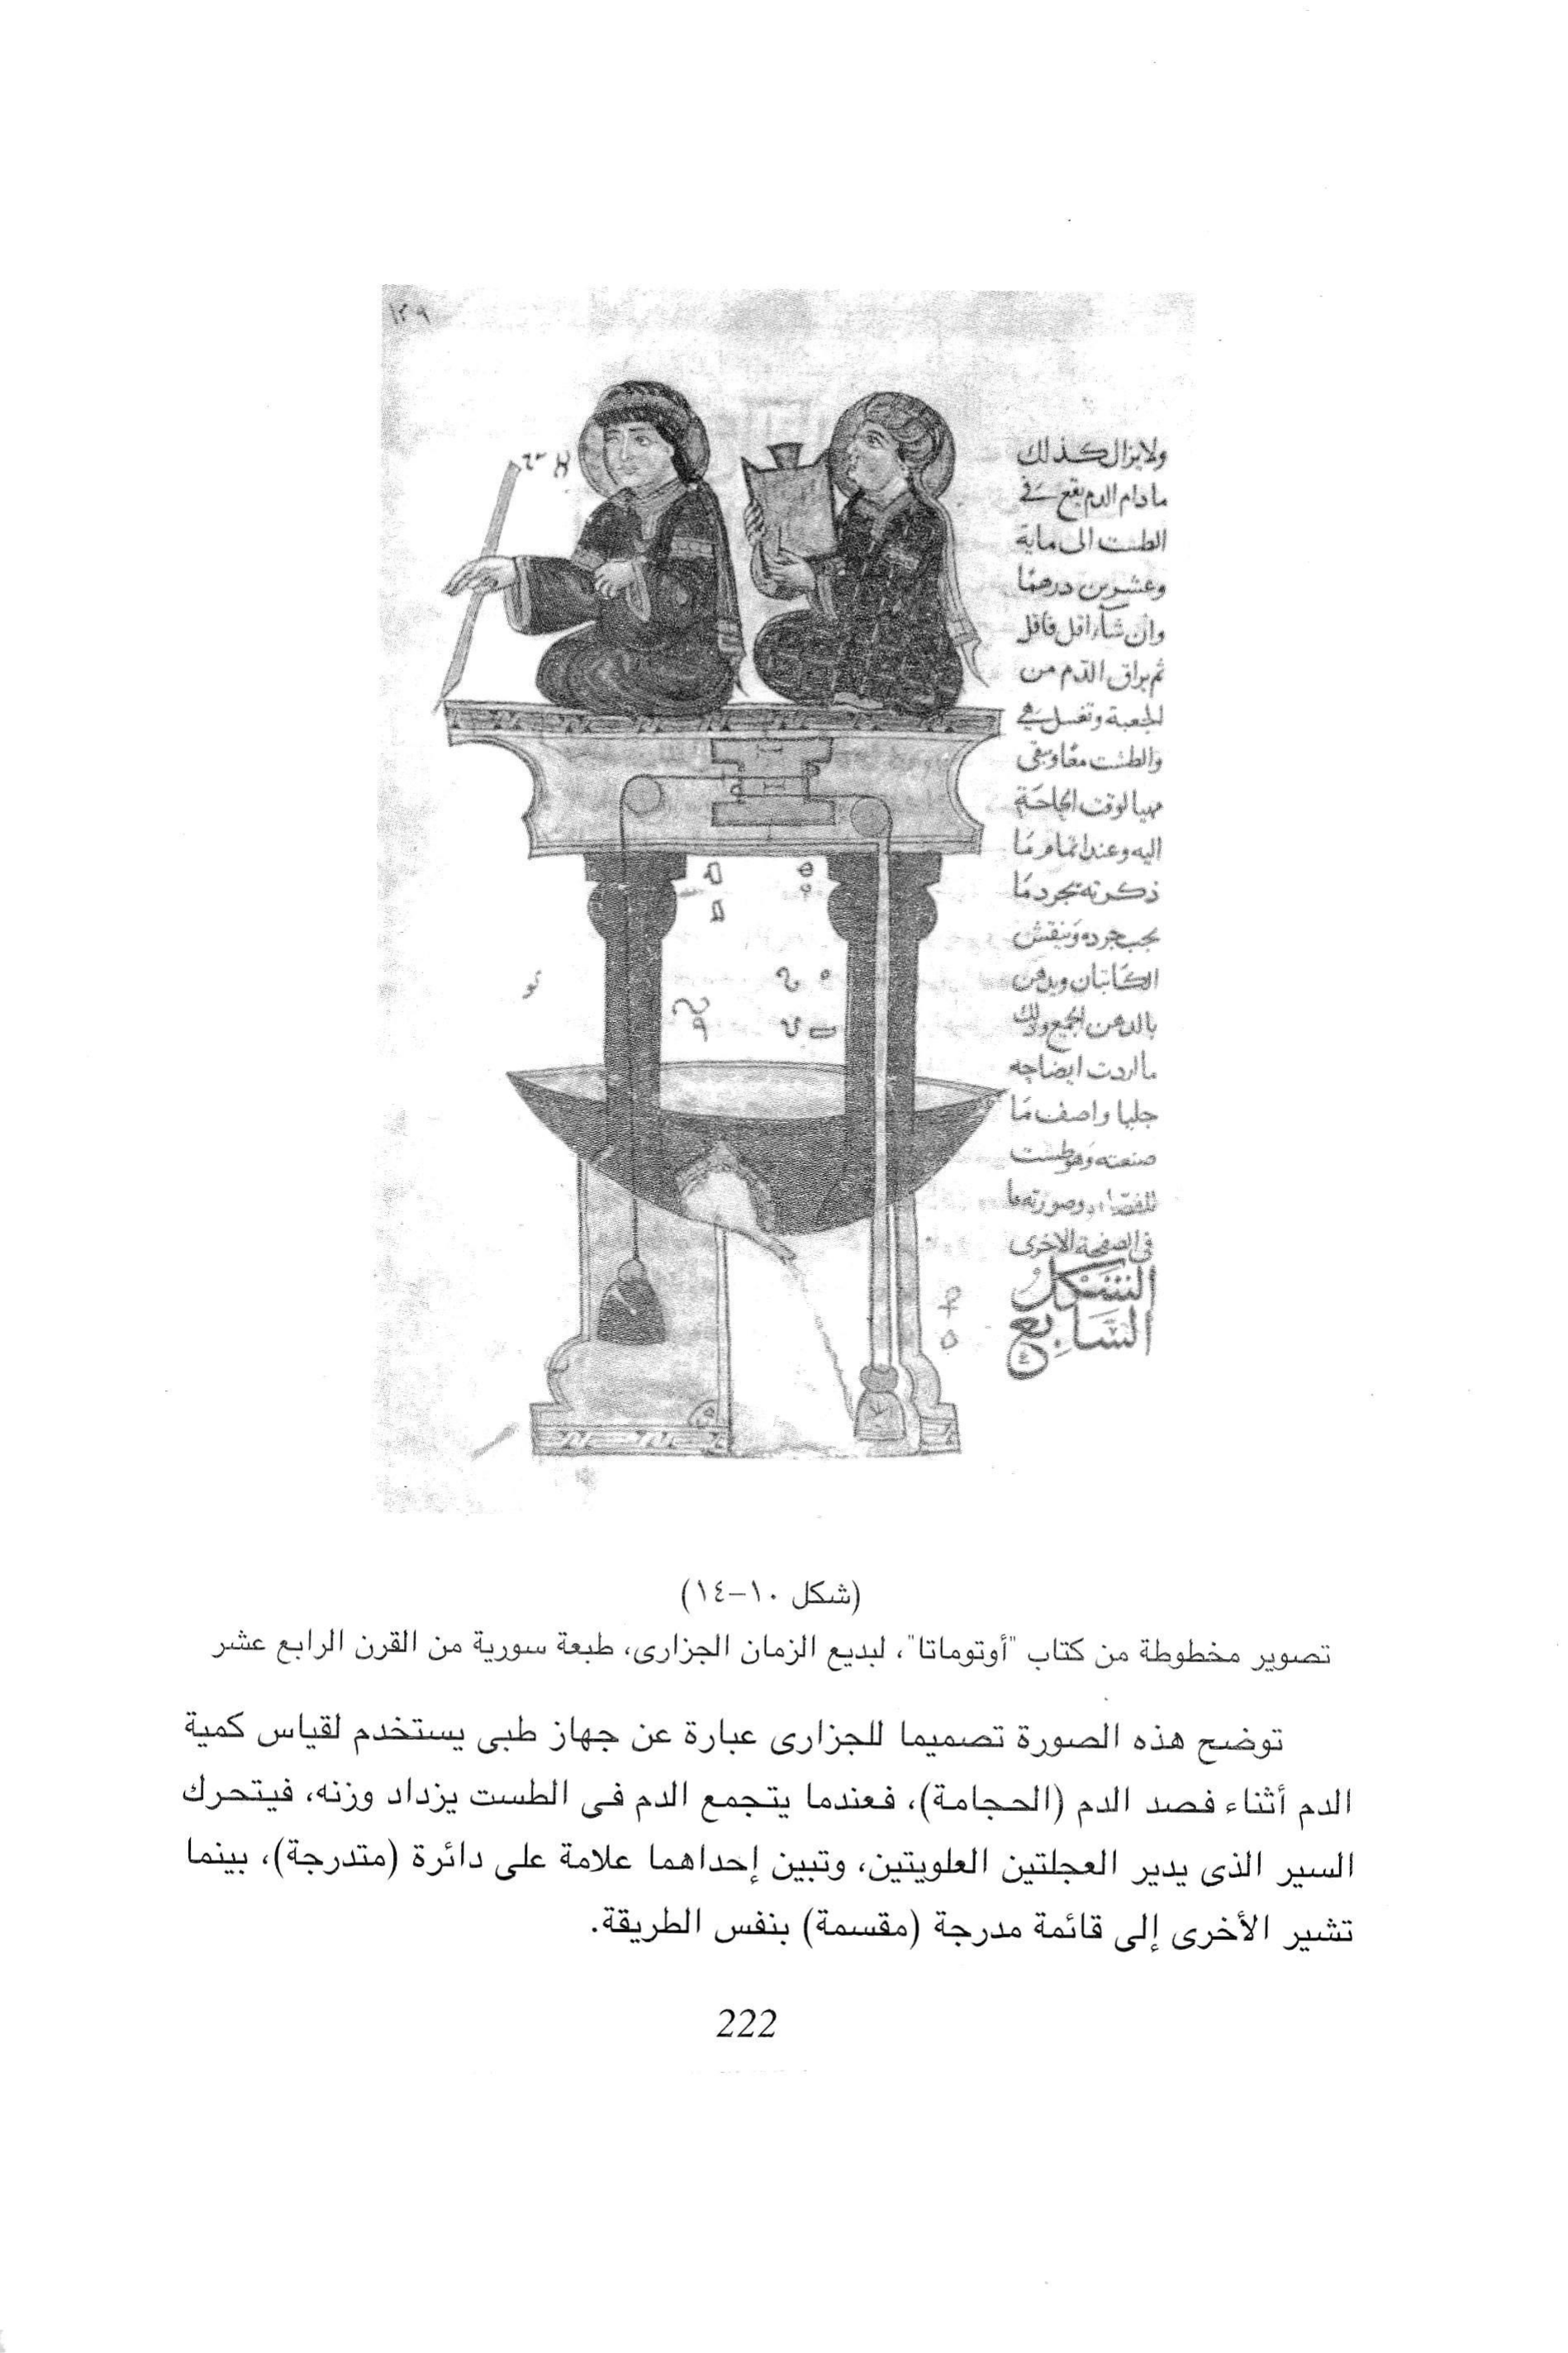 ١٢٩
ولا يزال كذلك
ما دام الدم يقع في
الطشت الى ماية
وعشرين درهمًا
وان شاء اقل فاقل
ثم يراق الدّم من
الجعبة وتغسل هي
والطشت معًا ويبقى
مهيا لوقت الحاجة
اليه وعند اتمام مَا
ذكرته تجرد مَا
يجب جرده وَينقش
الكاتبان ويدهن
بالدهن الجميع وذلك
ما اردت ايضاحه
جليا واصف مَا
صنعته وَهو طشت
للفصّاد وصورته ما
في الصفحة الاخرى
الشكل
السَّابع
(شكل ١٠-١٤)
تصوير مخطوطة من كتاب "أوتوماتا"، لبديع الزمان الجزارى، طبعة سورية من القرن الرابع عشر
توضح هذه الصورة تصميما للجزارى عبارة عن جهاز طبى يستخدم لقياس كمية
الدم أثناء فصد الدم (الحجامة)، فعندما يتجمع الدم فى الطست يزداد وزنه، فيتحرك
السير الذى يدير العجلتين العلويتين، وتبين إحداهما علامة على دائرة (متدرجة)، بينما
تشير الأخرى إلى قائمة مدرجة (مقسمة) بنفس الطريقة.
222